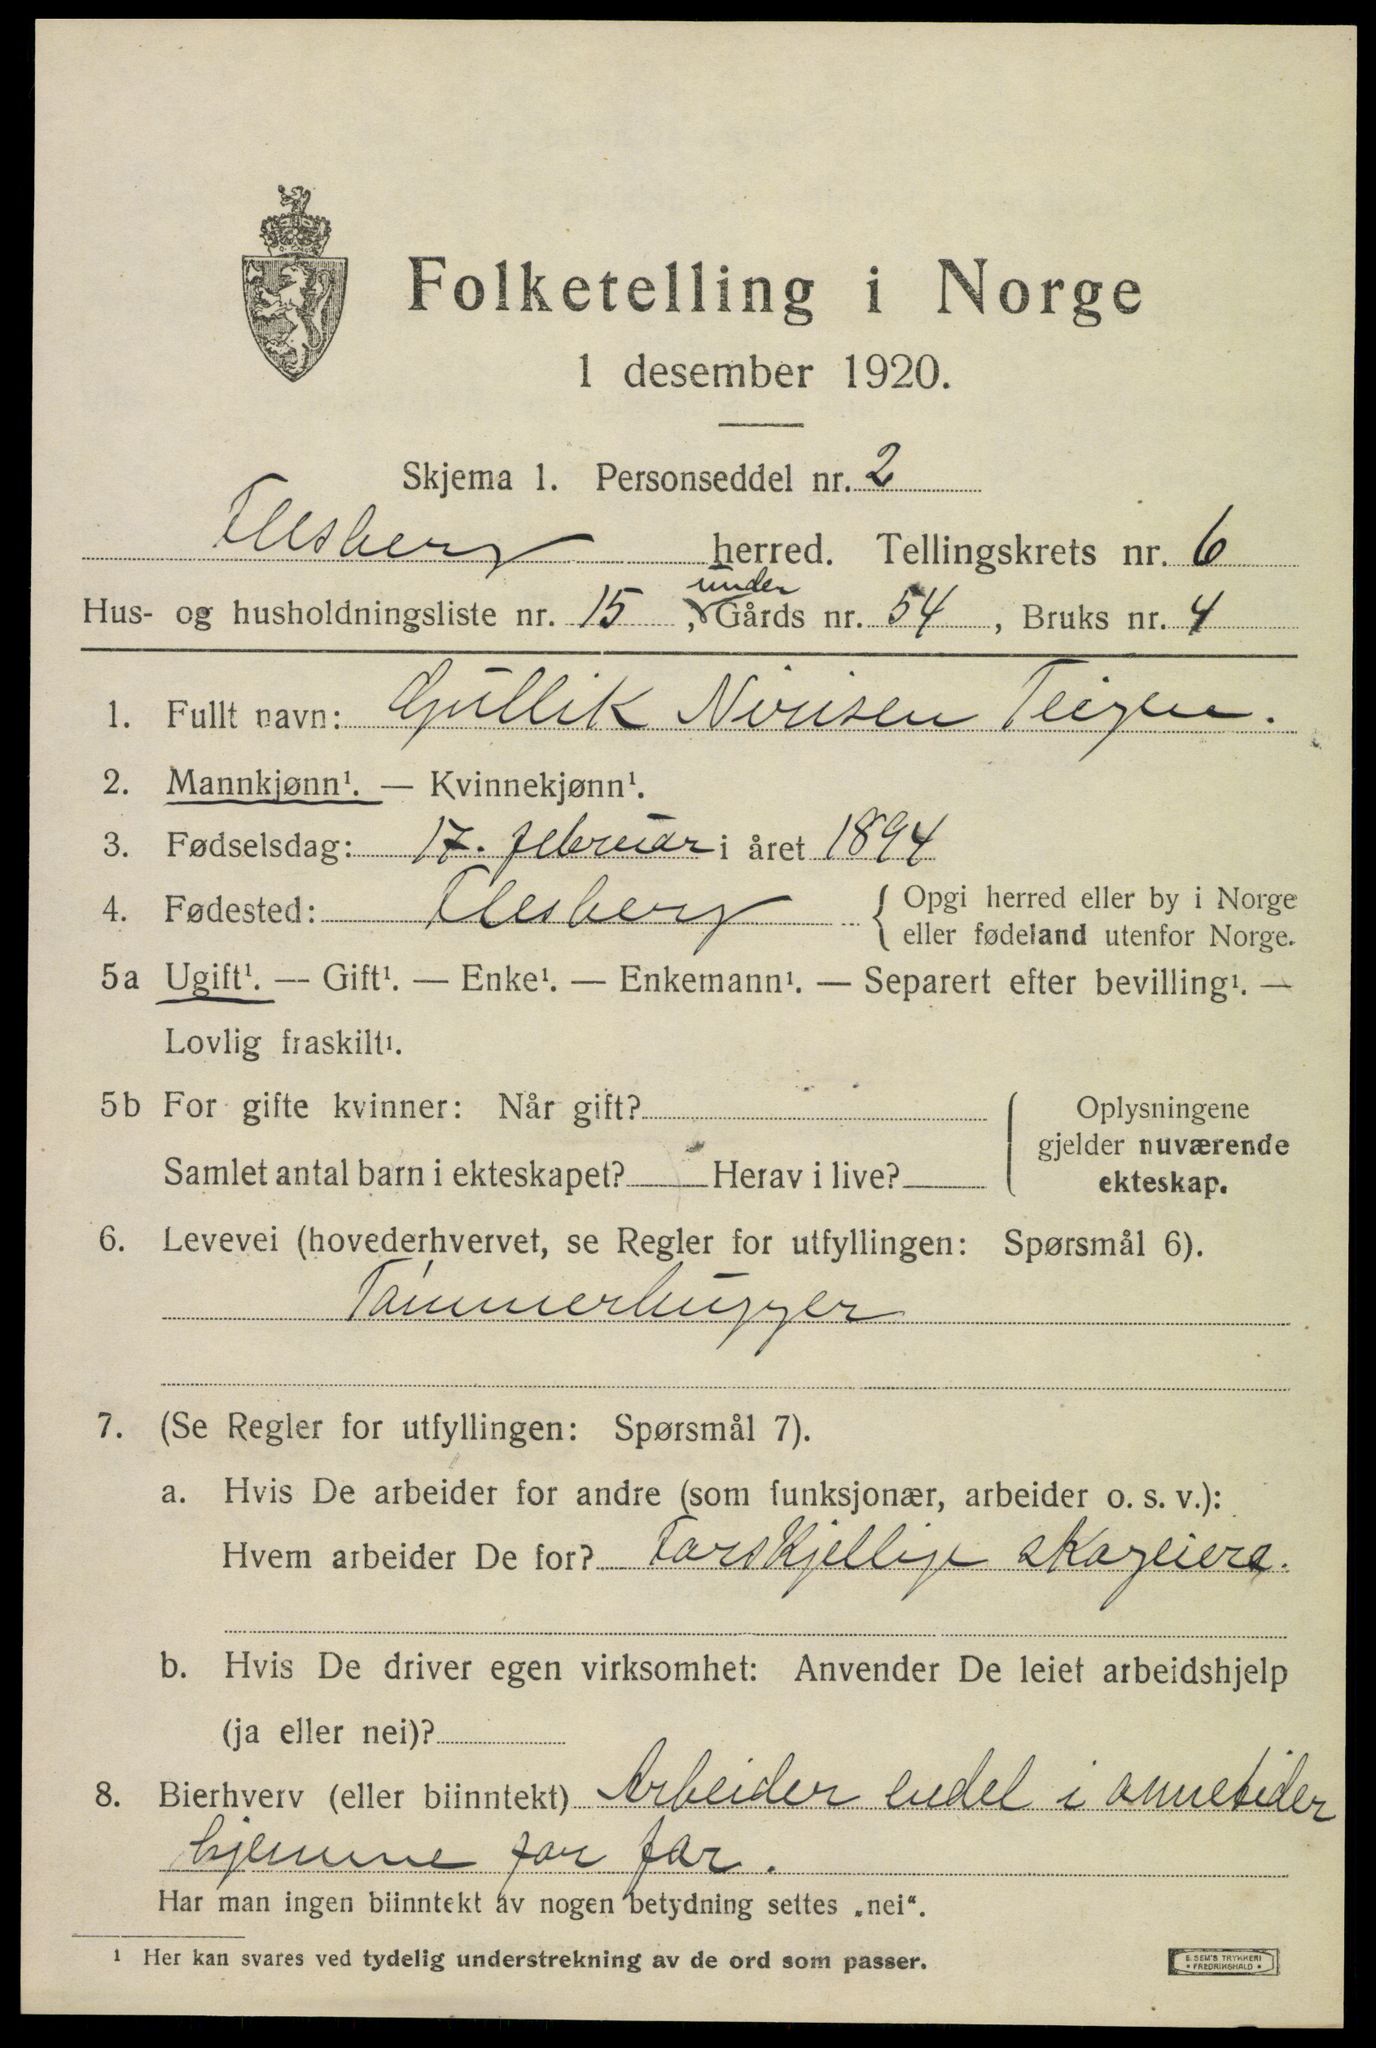 Folketelling i Norge
1 desember 1920.
Skjema 1. Personseddel nr. 2
Flesberg herred. Tellingskrets nr. 6
under
Hus- og husholdningsliste nr. 15, Gårds nr. 54, Bruks nr. 4
1. Fullt navn: Gullik Nirisen Teigen.
2. Mannkjønn¹. — Kvinnekjønn¹.
3. Fødselsdag: 17. februar i året 1894
4. Fødested: Flesberg { Opgi herred eller by i Norge
eller fødeland utenfor Norge.
5a Ugift¹. — Gift¹. — Enke¹. — Enkemann¹. — Separert efter bevilling¹. —
Lovlig fraskilt¹.
5b For gifte kvinner: Når gift?
Samlet antal barn i ekteskapet? Herav i live?
Oplysningene
gjelder nuværende
ekteskap.
6. Levevei (hovederhvervet, se Regler for utfyllingen: Spørsmål 6).
Tømmerhugger
7. (Se Regler for utfyllingen: Spørsmål 7).
a. Hvis De arbeider for andre (som funksjonær, arbeider o. s. v.):
Hvem arbeider De for? Forskjellige skogeiere.
b. Hvis De driver egen virksomhet: Anvender De leiet arbeidshjelp
(ja eller nei)?
8. Bierhverv (eller biinntekt) Arbeider endel i onnetider
hjemme for far.
Har man ingen biinntekt av nogen betydning settes „nei“.
¹ Her kan svares ved tydelig understrekning av de ord som passer.
E. SEM'S TRYKKERI
• FREDRIKSHALD •